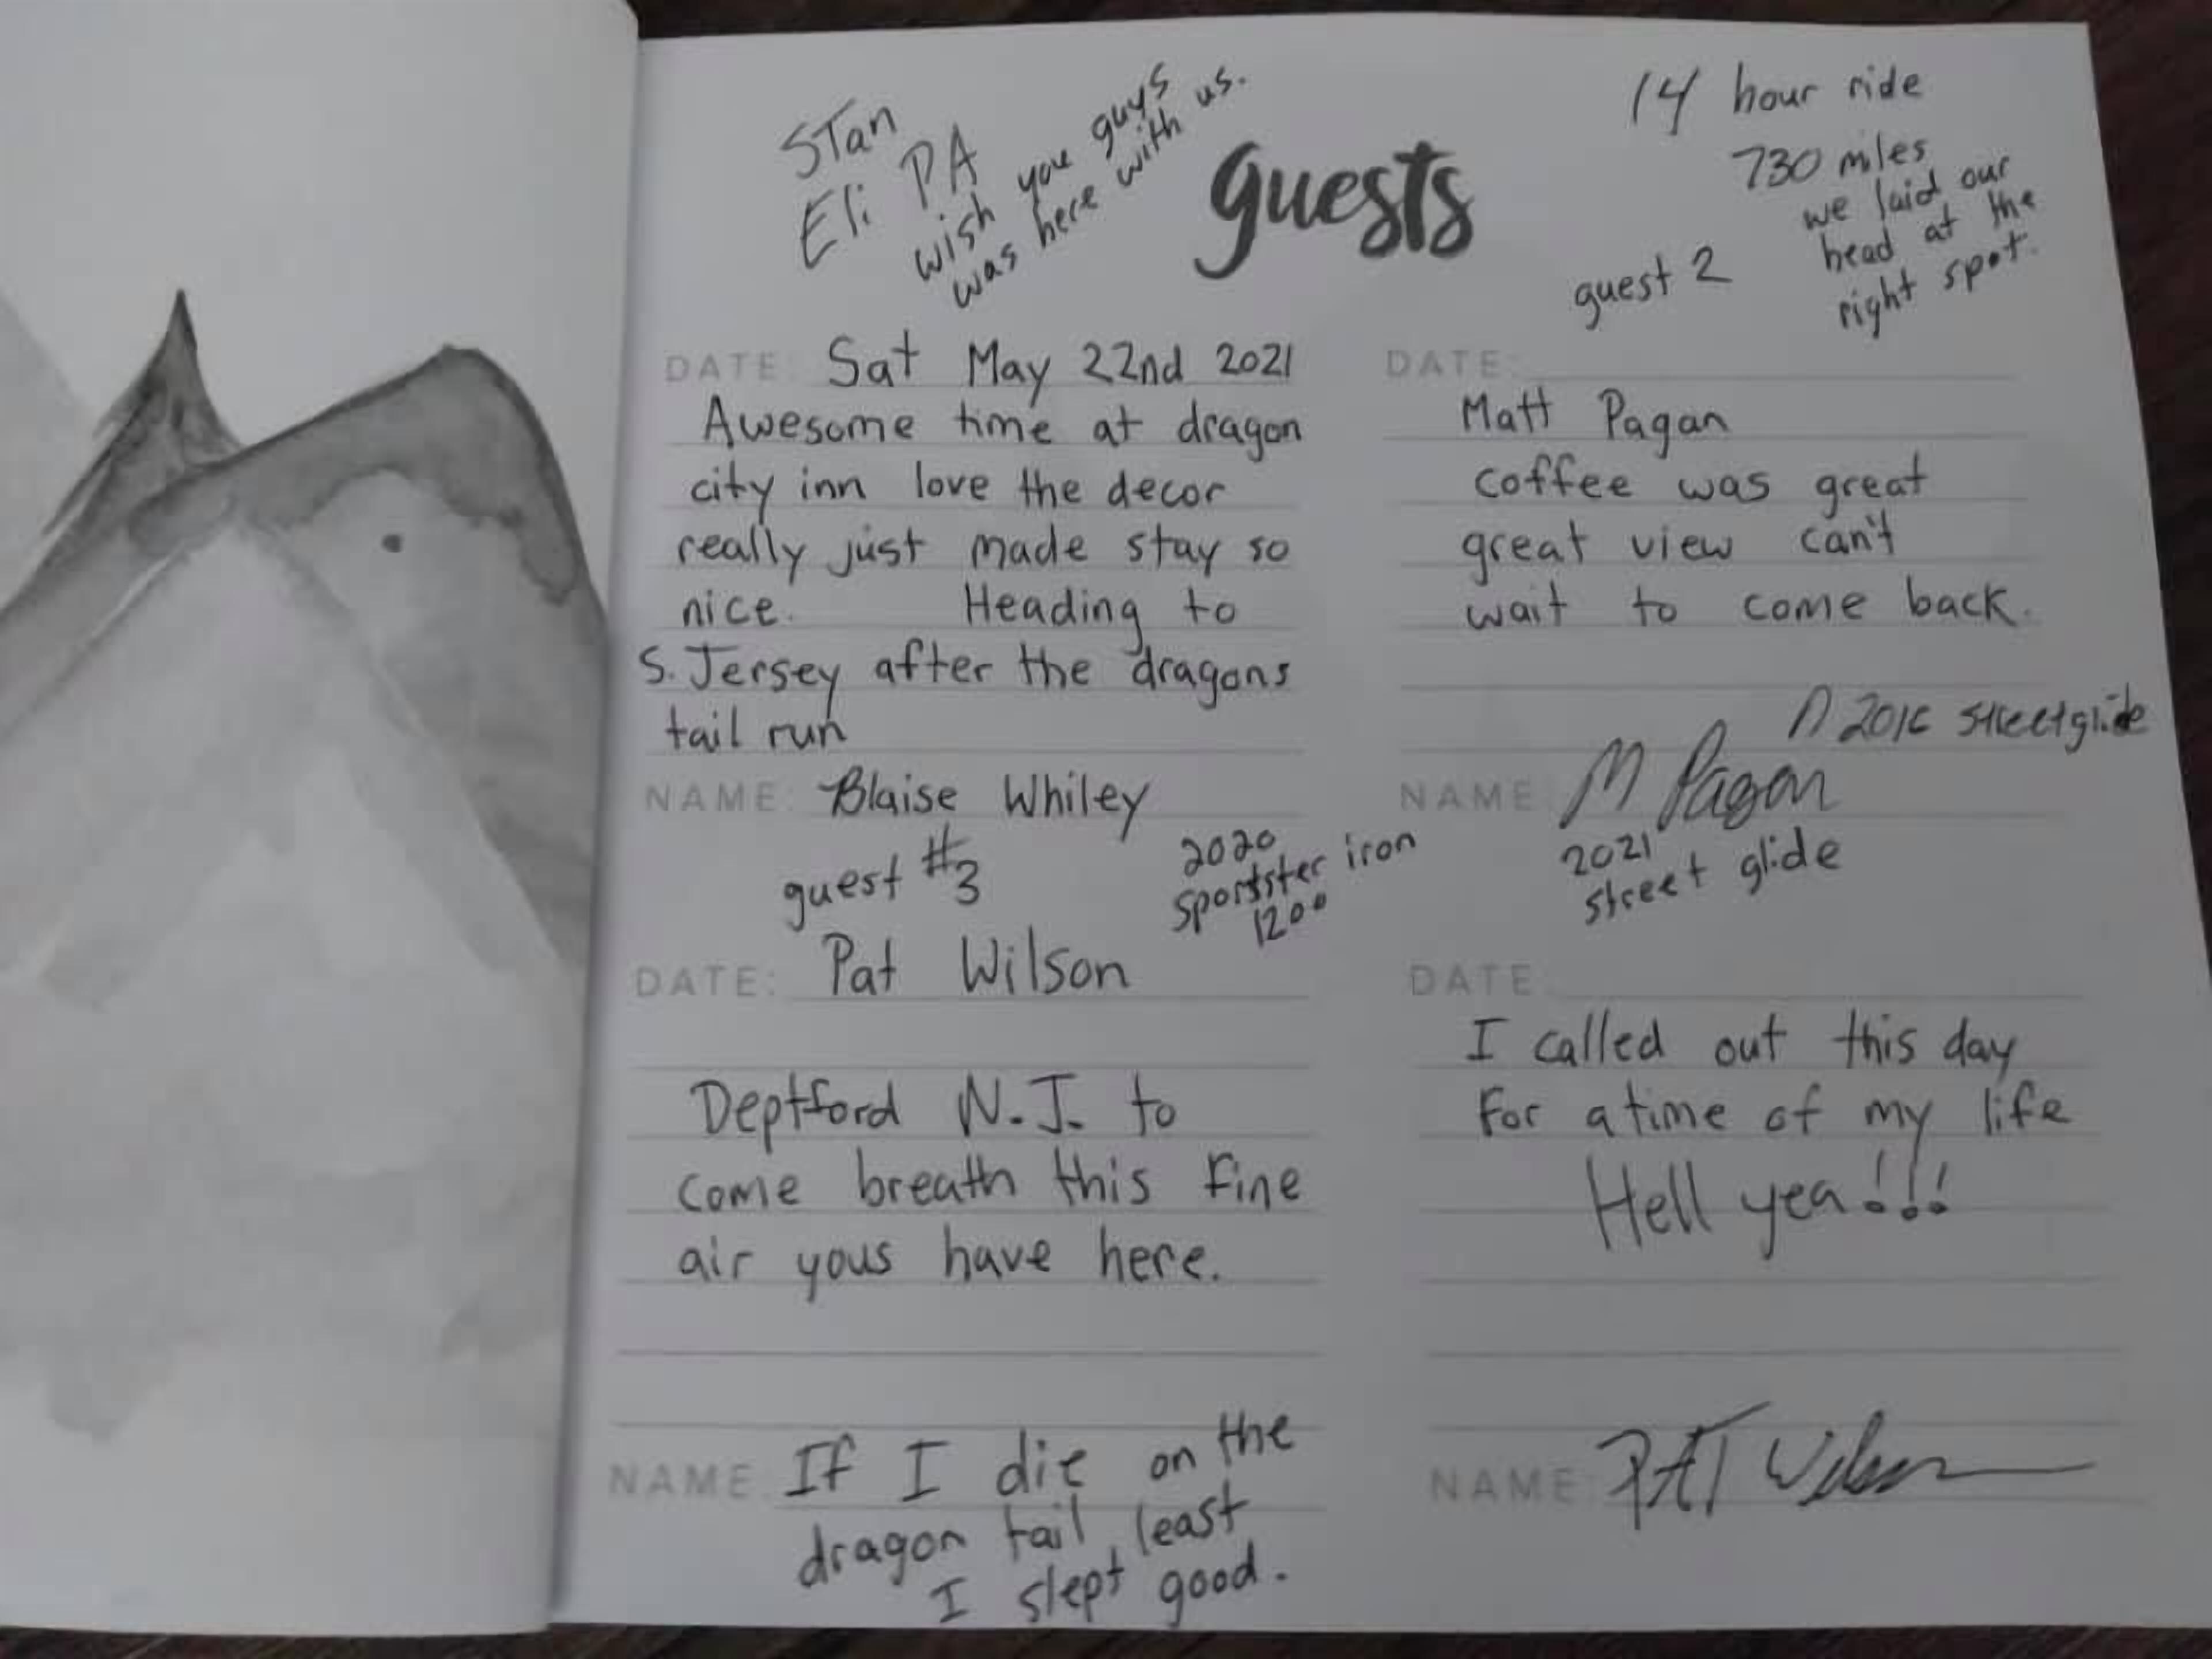 STan
Eli PA
wish you guys
was here with us.
guests
14 hour ride
730 miles
we laid our
head at the
right spot.
guest 2
DATE: Sat May 22nd 2021
Awesome time at dragon
city inn love the decor
really just made stay so
nice. Heading to
S. Jersey after the dragons
tail run
NAME: Blaise Whiley
2020
sportster iron
1200
DATE:
Matt Pagan
coffee was great
great view can't
wait to come back.
streetglide
NAME: M Pagan
2021
street glide
guest #3
DATE: Pat Wilson
Deptford N.J. to
come breath this fine
air yous have here.
NAME: If I die on the
dragon tail least
I slept good.
DATE:
I called out this day
For a time of my life
Hell yea!!!
NAME: PAT Wilson